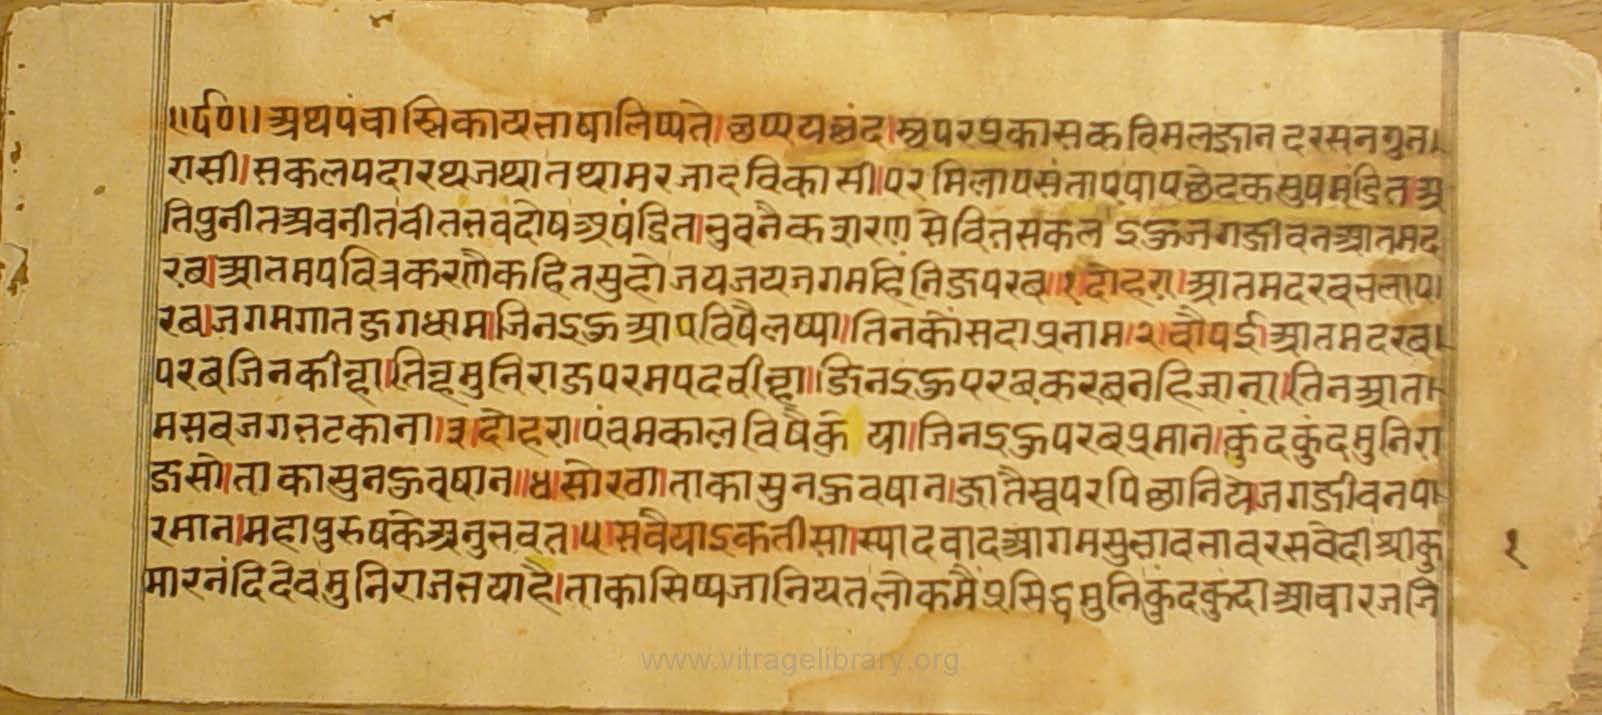 ॥र्द०॥ अथपंचास्तिकायभाषालिष्यते। छप्पयछंद। स्वपरप्रकासकविमलज्ञानदरसनगुन।
रासी। सकलपदारथजथातथामरजादविकासी। परमिलापसंतापपापछेदकसुषमंडित। अ
तिपुनीतअवनीतवीतभवदोषअषंडित। भुवनैकशरणसेवितसकलइऊजगजीवनआतमद
रब। आतमपवित्रकरणैकहितसुहोजयजयजगमहिंनिजपरब॥१दोहरा। आतमदरबनलाप।
रब। जगमगातजगधाम। जिनइऊआपविषैलष्या। तिनकौसदाप्रनाम।२। चौपई। आतमदरब।
परबजिनकीन्हा। तिन्हमुनिराजपरमपदचीन्हा। जिनइऊपरबकरबनहिजाना। तिनआता
मसबजगभटकाना।३। दोहरा। पंचमकालविषैकि या। जिनइऊपरबप्रमान। कुंदकुंदमुनिरा
जसो। ताकासुनऊवषान॥४। सोरठा। ताकासुनऊवषान। जातैस्वपरपिछानिये। जगजीवनपा
रमान। महापुरुषकेअनुभवत।५। सवैयाइकतीसा। स्यादवादआगमसुभावभावरसवेदीश्रीकु
मारनंदिदेवमुनिराजभयाहै। ताकासिष्यजानियतलोकमैंप्रसिद्धमुनिकुंदकुंदाआचारजजि
१
www.vitragelibrary.org